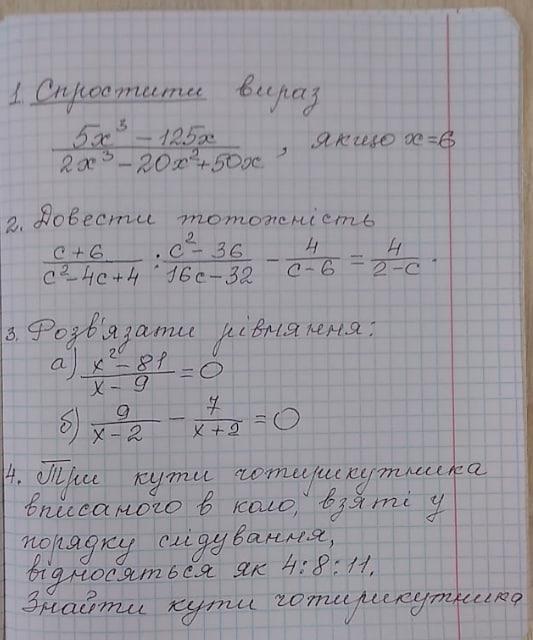 1. Спростити вираз
(5x³ − 125x)/(2x³ − 20x² + 50x), якщо x=6
2. Довести тотожність
(c+6)/(c² − 4c + 4) : (c² − 36)/(16c − 32) − 4/(c − 6) = 4/(2 − c).
3. Розв'язати рівняння:
а) (x² − 81)/(x − 9) = 0
б) 9/(x − 2) − 7/(x + 2) = 0
4. Три кути чотирикутника
вписаного в коло, взяті у
порядку слідування,
відносяться як 4:8:11.
Знайти кути чотирикутника